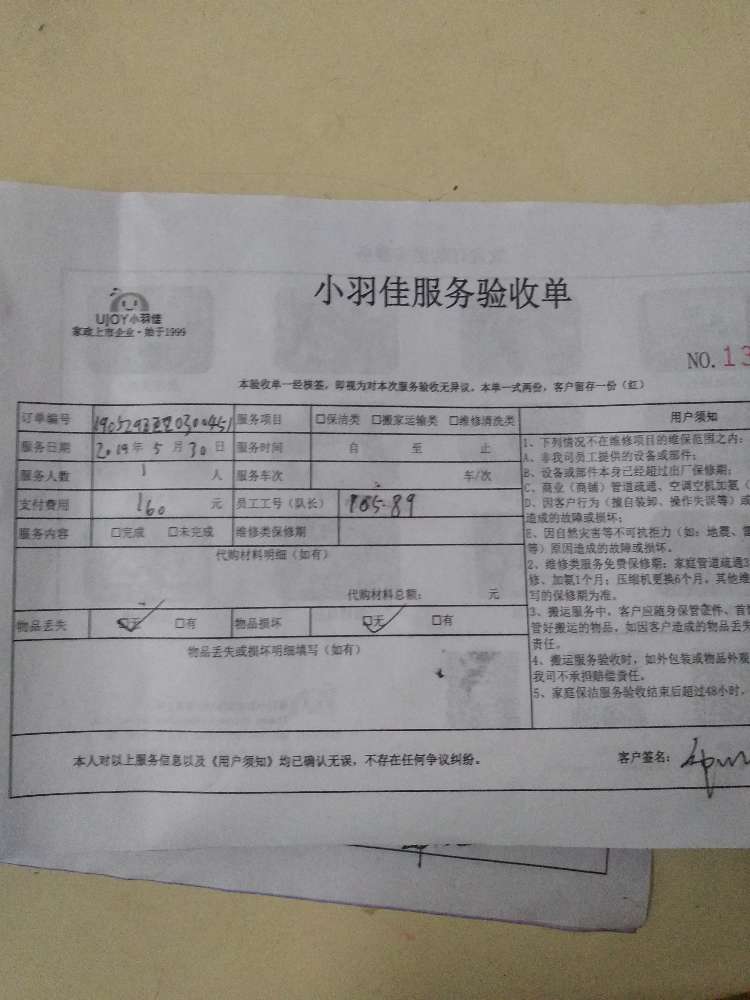 小羽佳服务验收单
UJOY小羽佳
家政上市企业·始于1999
NO.13
本验收单一经核签，即视为对本次服务验收无异议。本单一式两份，客户留存一份（红）
订单编号 服务项目 □保洁类 □搬家运输类 □维修清洗类
服务日期 2019年5月30日 服务时间 自 至 止
服务人数 1 人 服务车次 车/次
支付费用 160 元 员工工号（队长） 105-89
服务内容 □完成 □未完成 维修类保修期
代购材料明细（如有）
代购材料总额： 元
物品丢失 □无 □有 物品损坏 □无 □有
物品丢失或损坏明细填写（如有）
用户须知
1、下列情况不在维修项目的维保范围之内：
A、非我司员工提供的设备或部件；
B、设备或部件本身已经超过出厂保修期；
C、商业（商铺）管道疏通、空调空机加氟（
D、因客户行为（擅自装卸、操作失误等）或
造成的故障或损坏；
E、因自然灾害等不可抗拒力（如：地震、雷
等）原因造成的故障或损坏。
2、维修类服务免费保修期：家庭管道疏通3
修、加氟1个月；压缩机更换6个月，其他维
写的保修期为准。
3、搬运服务中，客户应随身保管证件、首饰
管好搬运的物品，如因客户造成的物品丢失
责任。
4、搬运服务验收时，如外包装或物品外观
我司不承担赔偿责任。
5、家庭保洁服务验收结束后超过48小时，
本人对以上服务信息以及《用户须知》均已确认无误，不存在任何争议纠纷。
客户签名：